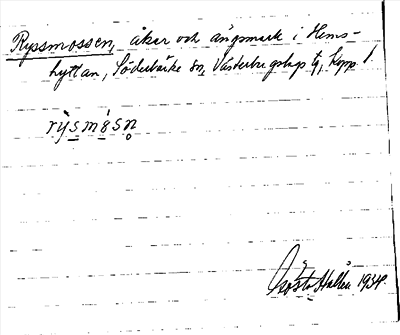 Ryssmossen, åker och ängsmark i Hems-
hyttan, Söderbärke sn, Västerbergslags tg, Kopp. l.
rỳsmåsn̥
Gösta Hallén 1934.